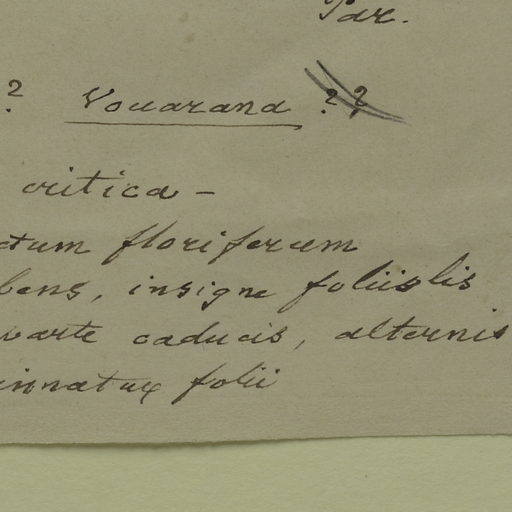 Par.
? Vouarana ??
critica -
tum floriferum
bens, insigne foliislis
parte caducis, alternis
innatux folii